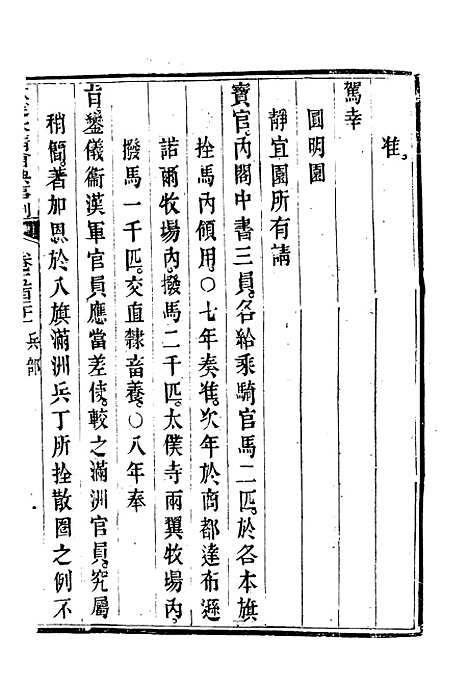 准。
駕幸
圓明園
靜宜園所有請
寶官。內閣中書三員。各給乘騎官馬二匹。於各本旗
拴馬內領用。○七年奏准。次年於商都達布遜
諾爾牧場內。撥馬二千匹。太僕寺兩翼牧場內。
撥馬一千匹。交直隸畜養。○八年奉
旨。鑾儀衞漢軍官員應當差使。較之滿洲官員。究屬
稍簡。著加恩於八旗滿洲兵丁所拴散圈之例。不
兵部